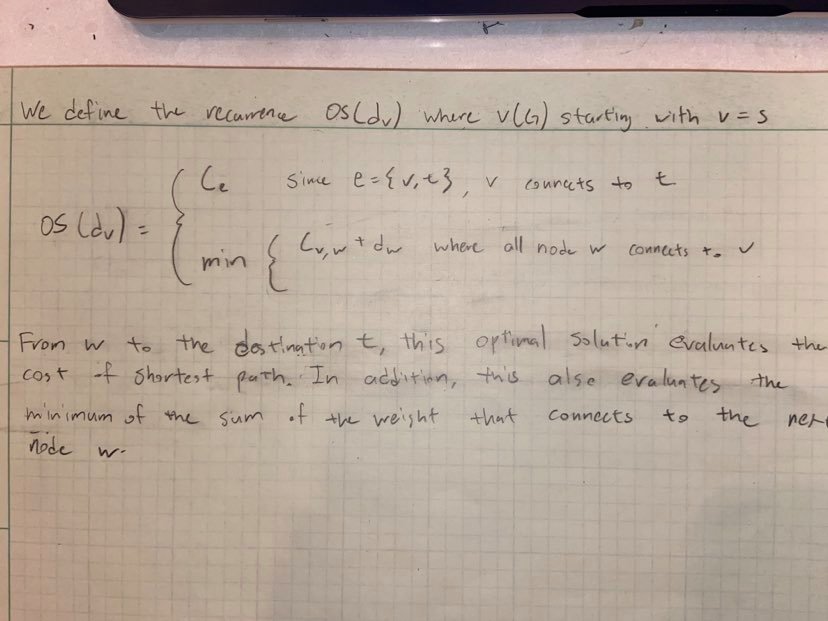 We define the recurrence OS(dv) where V(G) starting with v = s
OS(dv) = { Ce since e = {v,t}, v connects to t
min { Cv,w + dw where all node w connects to v
From w to the destination t, this optimal solution evaluates the
cost of shortest path. In addition, this also evaluates the
minimum of the sum of the weight that connects to the
node w.